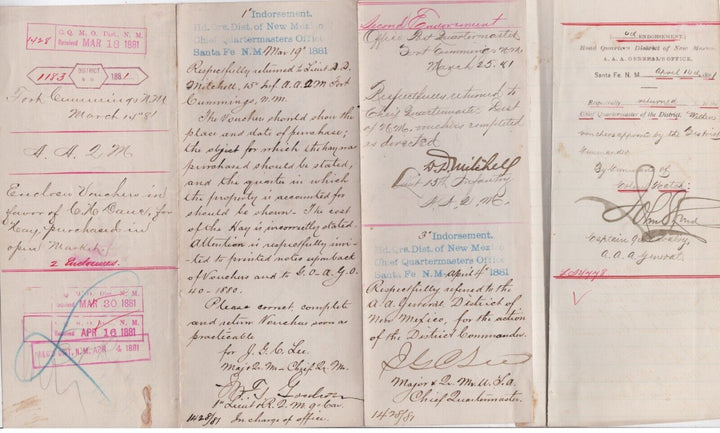 C. Q. M. O. Dist. N. M.
1428
Received MAR 19 1881
1183 DISTRICT N M 1881.
Fort Cummings N.M.
March 14" 81
A. A. Q. M.
Encloses Vouchers in
favor of C. H. Dane, for
Hay purchased in
open Market.
2 Enclosures.
Q. M. O. Dist. N. M.
Received MAR 30 1881
Q. M. O. Dist. N. M.
Received APR 16 1881
DIST. N.M. APR 4 1881
1st Indorsement.
Hd. Qrs. Dist. of New Mexico
Chief Quartermasters Office
Santa Fe N. M. Mar 19" 1881
Respectfully returned to Lieut D. D.
Mitchell, 15" Inf. A. A. Q M Fort
Cummings, N.M.
The Voucher should show the
place and date of purchase;
the object for which the hay was
purchased should be stated,
and the quarter in which
the property is accounted for
should be shown. The cost
of the Hay is incorrectly stated.
Attention is respectfully invi-
ted to printed notes upon back
of Vouchers and to G.O. A.G.O.
40 - 1880.
Please correct, complete
and return Vouchers soon as
practicable
for J. G. C. Lee
Major Q. M. - Chief Q. M.
1st Lieut & R. Q. M. 9" Cav.
1428/81 In charge of office.
Second Endorsement
Office Post Quartermaster
Fort Cummings N.M.
March 25. 81
Respectfully returned to
Chief Quartermaster Dist
of N. M. vouchers completed
as directed
D D Mitchell
Lieut 15th Infantry
A. A. Q. M.
3d Indorsement.
Hd. Qrs. Dist. of New Mexico
Chief Quartermasters Office
Santa Fe N. M. April 4" 1881
Respectfully referred to the
A. A. General District of
New Mexico, for the action
of the District Commander.
J G C Lee
Major & Qr. Mr. U. S. A.
Chief Quartermaster.
1428/81
ENDORSEMENT:
Head Quarters District of New Mexico
A. A. A. GENERAL'S OFFICE.
Santa Fe, N. M. April 16th, 1881
Respectfully returned to the
Chief Quartermaster of the District.
vouchers approved by the District
Commander.
By Command of
Colonel Hatch:
Captain 9th Cavalry,
A. A. A. General.